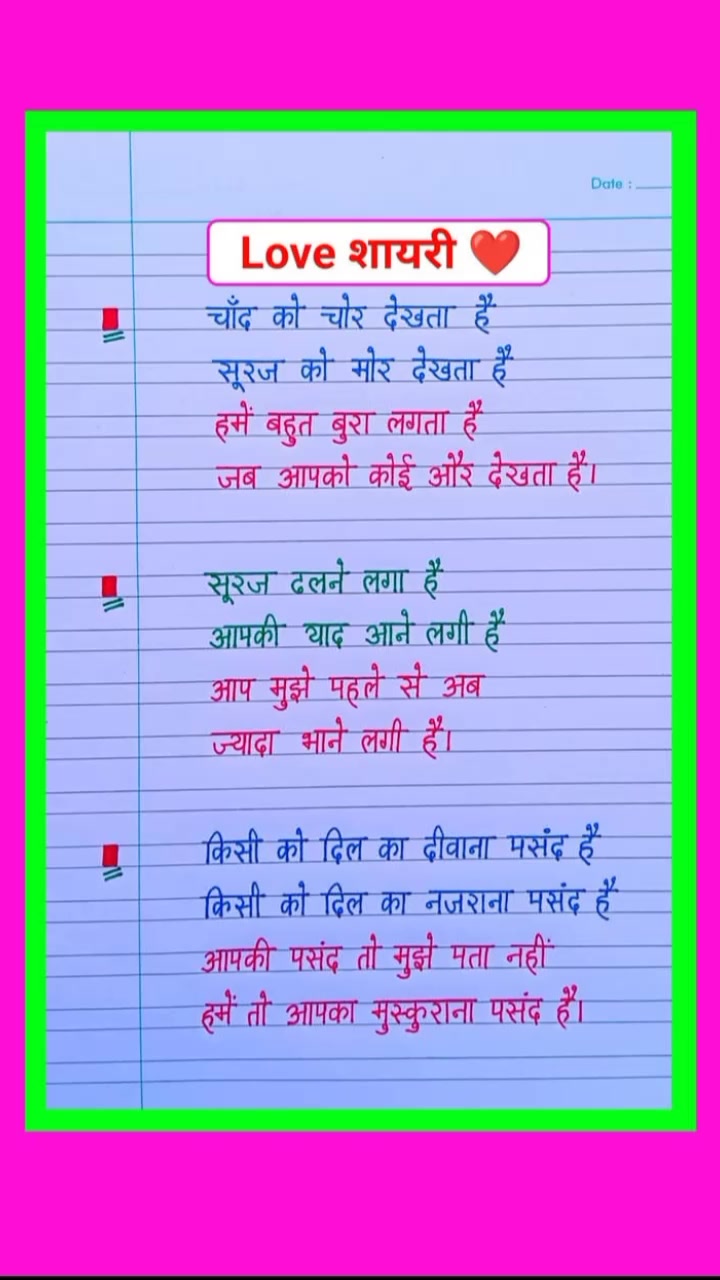 Date :
Love शायरी ❤️
चाँद को चोर देखता है
सूरज को मोर देखता है
हमें बहुत बुरा लगता है
जब आपको कोई और देखता है।
सूरज ढलने लगा है
आपकी याद आने लगी है
आप मुझे पहले से अब
ज्यादा भाने लगी है।
किसी को दिल का दीवाना पसंद है
किसी को दिल का नजराना पसंद है
आपकी पसंद तो मुझे पता नहीं
हमें तो आपका मुस्कुराना पसंद है।